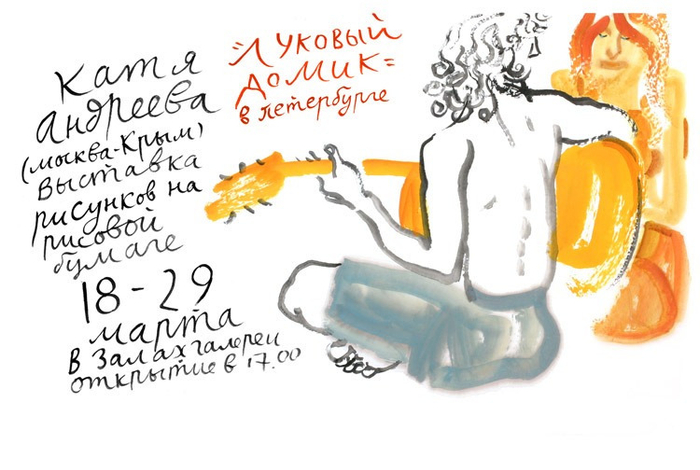 Катя
Андреева
(Москва-Крым)
Выставка
рисунков на
рисовой
бумаге
18-29
марта
в залах галереи
открытие в 17.00
"Луковый
домик"
в петербурге